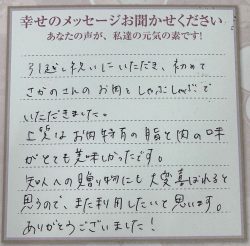 幸せのメッセージお聞かせください
あなたの声が、私達の元気の素です!
引越し祝いにいただき、初めて
さかのさんのお肉としゃぶしゃぶで
いただきました。
上質なお肉特有の脂と肉の味
がとても美味しかったです。
知人への贈り物にも大変喜ばれると
思うので、また利用したいと思います。
ありがとうございました!